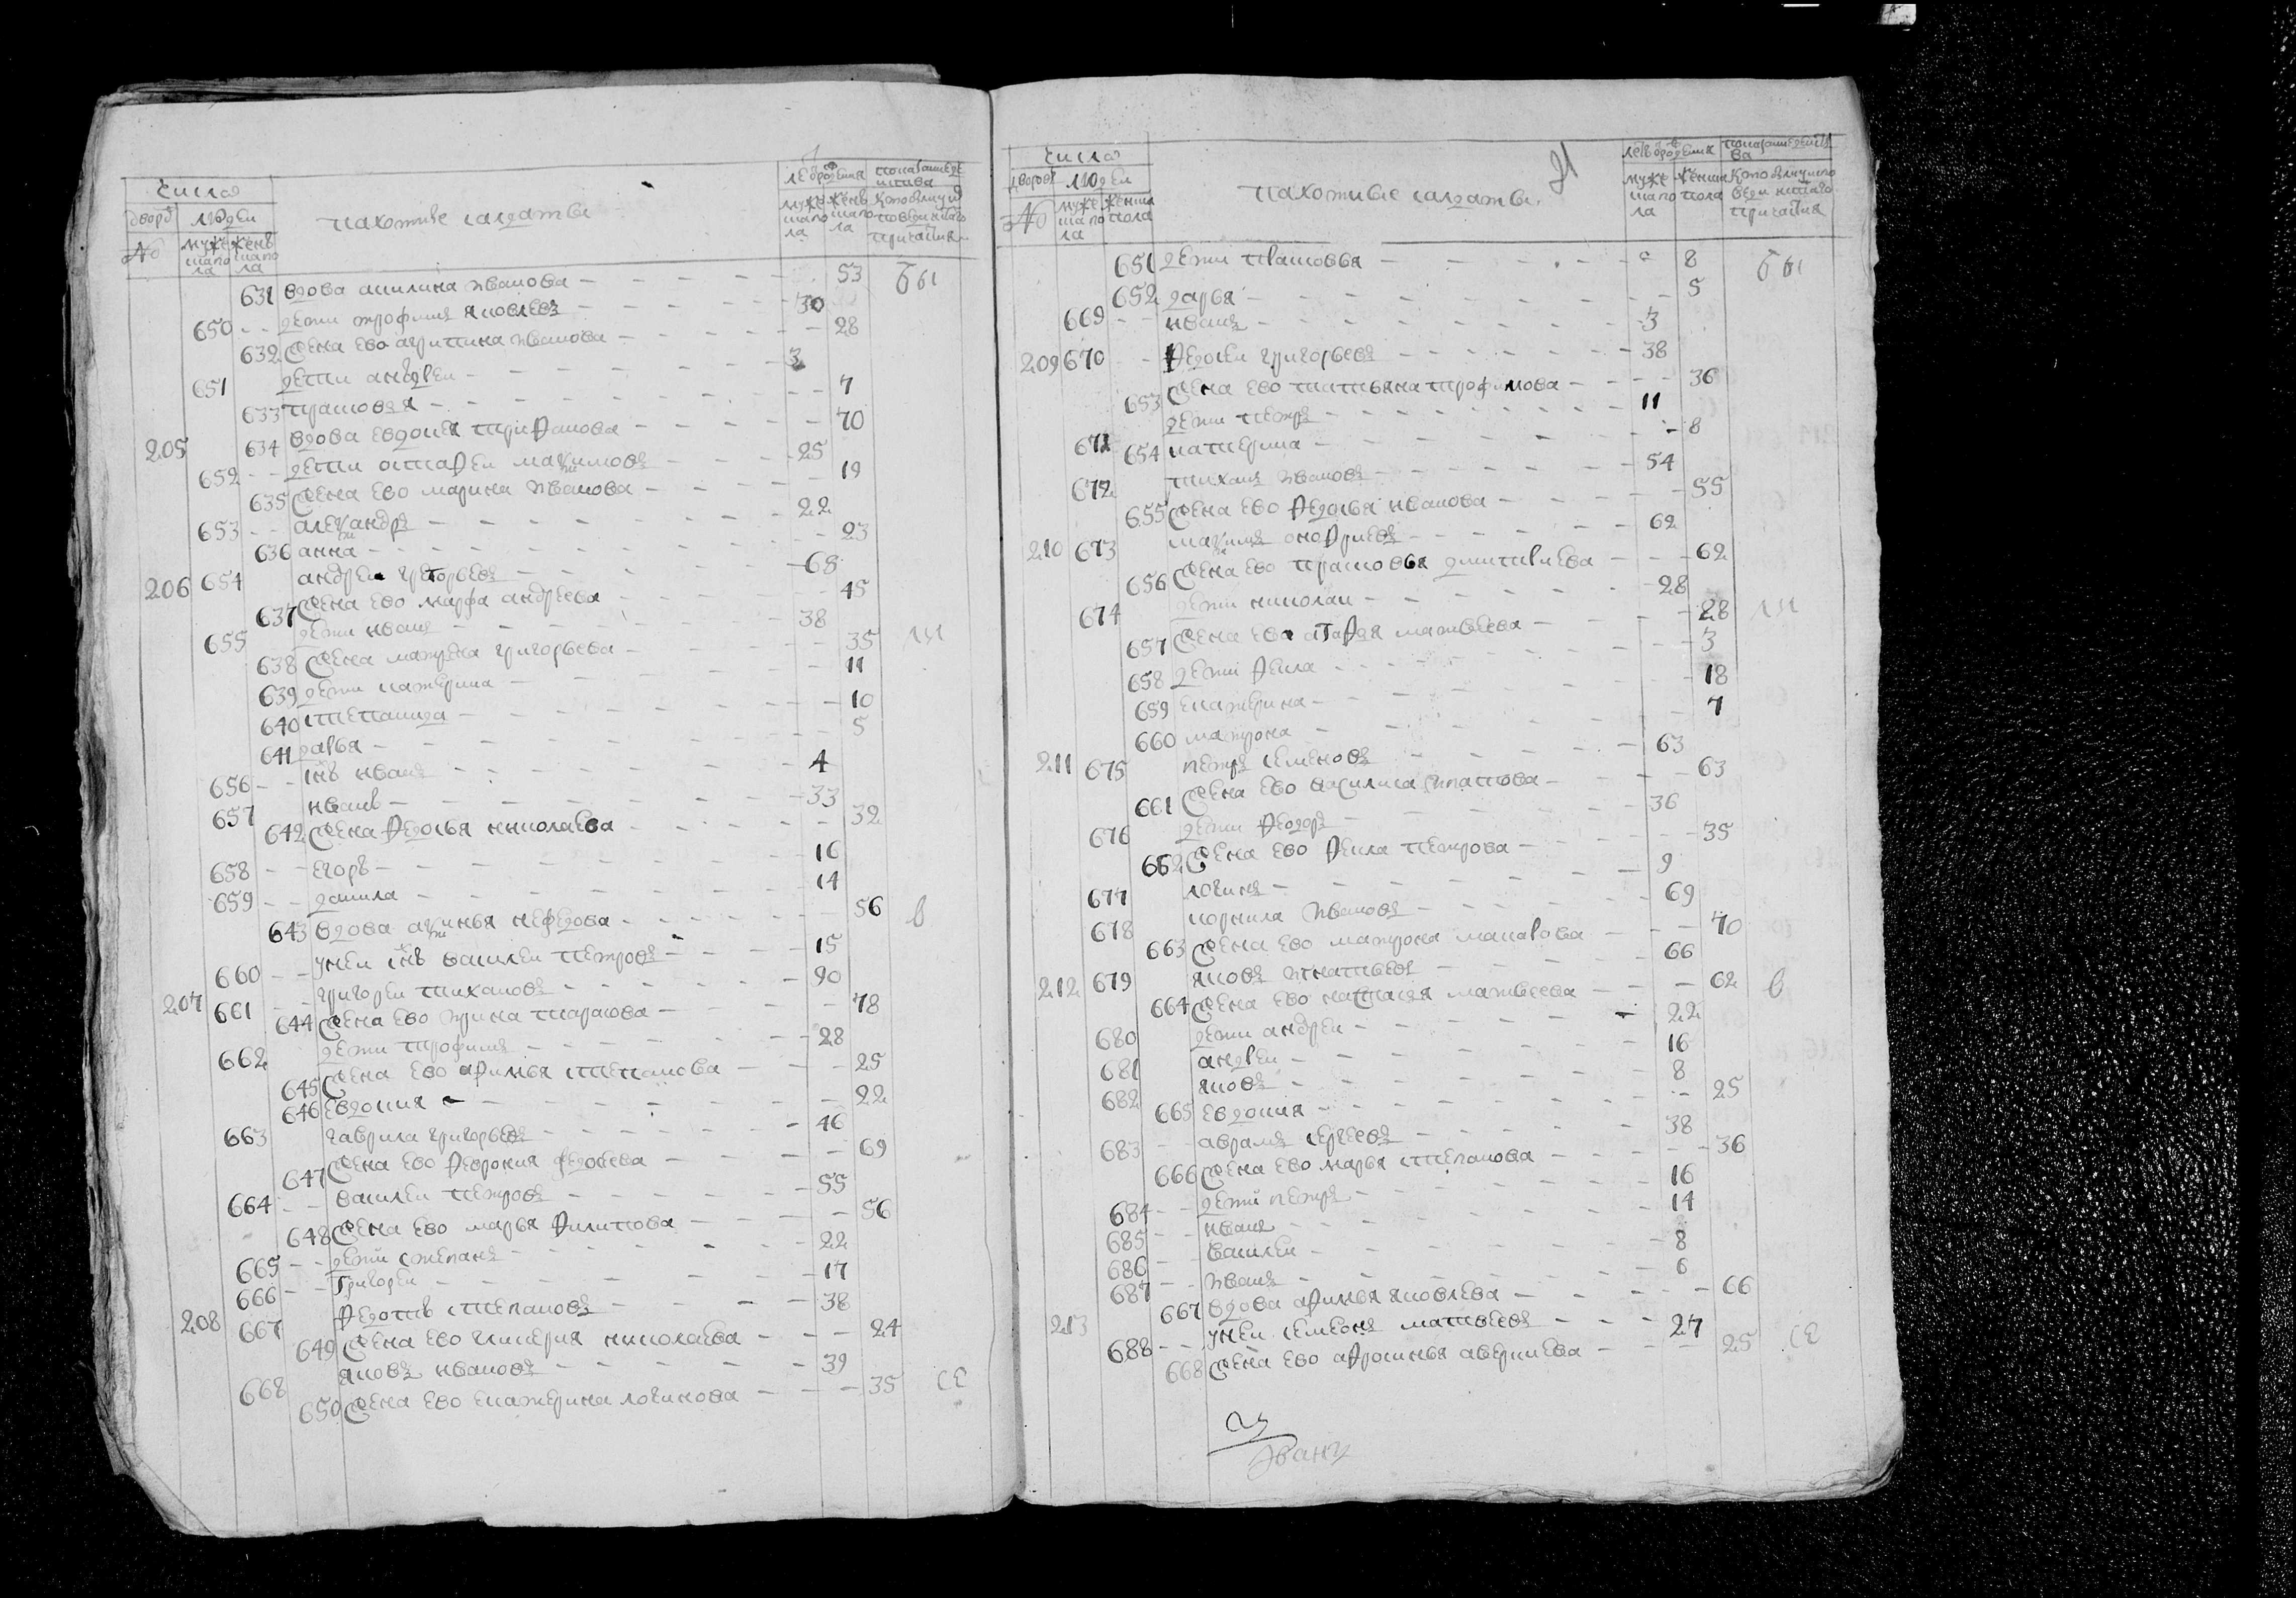 Число
дворов людей
№ мужеска пола женска пола
пахотные салдаты
лет от рождения
мужеска пола женска пола
показание действа кто был у исповеди и святаго причастия
631 вдова акилина иванова 53 бы
650 дети трофимъ яковлевъ 30
632 жена ево агрипина иванова 28
651 дети андрей 3
633 прасковья 7
205 634 вдова евдокея трифанова 70
652 дети астафей максимовъ 25
635 жена ево марина иванова 19
653 александръ 22
636 анна 23
206 654 андрей григорьевъ 68
637 жена ево марфа андреева 45
655 дети иванъ 38
638 жена матрена григорьева 35 ли
639 дети катерина 11
640 степанида 10
641 дарья 5
656 снъ иванъ 4
657 иванъ 33
642 жена федосья николаева 32
658 егоръ 16
659 данила 14
643 вдова аксинья нефедова 56 в
660 у ней снъ василей петровъ 15
207 661 григорей тихановъ 90
644 жена ево ирина тарасова 78
662 дети трофимъ 28
645 жена ево афимья степанова 25
646 евдокия 22
663 гаврила григорьевъ 46
647 жена ево феврония федосеева 69
664 василей петровъ 55
648 жена ево марья филипова 56
665 дети степанъ 22
666 григорей 17
208 667 федотъ степановъ 38
649 жена ево гликерия николаева 24
668 яковъ ивановъ 39
650 жена ево екатерина логинова 35 се
Число
дворовъ людей
№ мужеска пола женска пола
пахотные салдаты
лет от рождения
мужеска пола женска пола
показание действа кто был у исповеди и святаго причастия
651 дети прасковья 8 бы
652 дарья 5
669 иванъ 3
209 670 федосей григорьевъ 38
653 жена ево татьяна трофимова 36
671 дети петръ 11
654 катерина 8
672 тиханъ ивановъ 54
655 жена ево федосья иванова 55
210 673 максимъ онофриевъ 62
656 жена ево прасковья дмитриева 62
674 дети николай 28
657 жена ево агафья матвеева 28 ли
658 дети фекла 3
659 екатерина 18
660 матрона 7
211 675 петръ семеновъ 63
661 жена ево василиса ипатова 63
676 дети федоръ 36
662 жена ево фекла петрова 35
677 логинъ 9
678 корнила ивановъ 69
663 жена ево матрона макарова 70
212 679 яковъ игнатьевъ 66
664 жена ево настасья матвеева 62 в
680 дети андрей 22
681 андрей 16
682 яковъ 8
665 евдокия 25
683 аврамъ сергеевъ 38
666 жена ево марья степанова 36
684 дети петръ 16
685 иванъ 14
686 василей 8
687 иванъ 6
213 667 вдова афимья яковлева 66
688 у ней семенъ матвеевъ 27
668 жена ево афросинья аверкиева 25 се
Иванъ